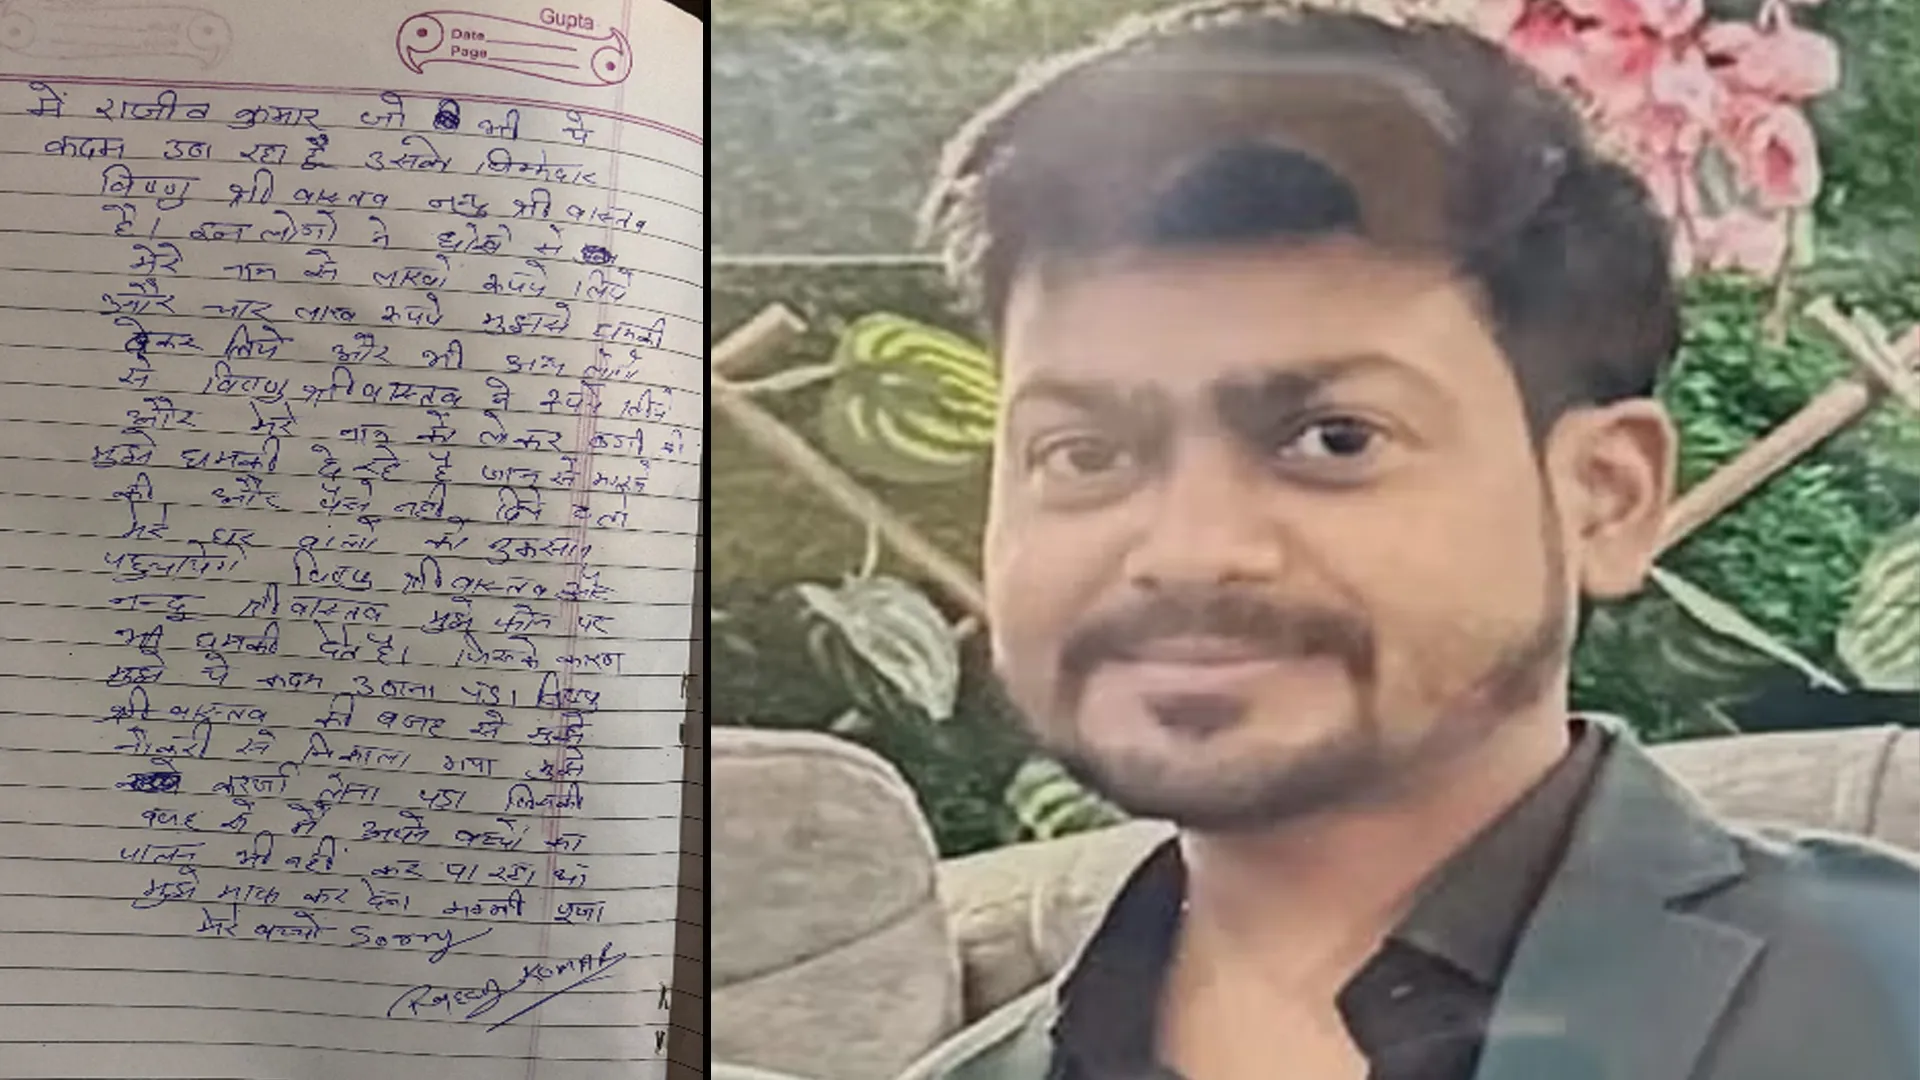 Gupta
Date
Page
में राजीव कुमार जो भी ये
कदम उठा रहा है उसके जिम्मेदार
विष्णु श्रीवास्तव नन्दु श्रीवास्तव
है। इन लोगो ने धोखे से
मेरे नाम से लाखो रूपये लिये
और चार लाख रूपये मुझसे धमकी
देकर लिये और भी अन्य लोगो
से विष्णु श्रीवास्तव ने रूपये लिये
और मेरे नाम को लेकर
मुझे धमकी दे रहे है जान से मारने
की और पैसे नही दिये तो
मेरे घर वालो को नुकसान
पहुचायेगे विष्णु श्रीवास्तव और
नन्दु श्रीवास्तव मुझे फोन पर
भी धमकी देते है। जिसके कारण
मुझे ये कदम उठाना पड़ा विष्णु
श्रीवास्तव की वजह से मुझे
नौकरी से निकाला गया मुझे
करजा लेना पडा जिसकी
वजह से मैं अपने बच्चो का
पालन भी नही कर पा रहा था
मुझे माफ कर देना मम्मी पूजा
मेरे बच्चो Sorry
Rajeev KUMAR